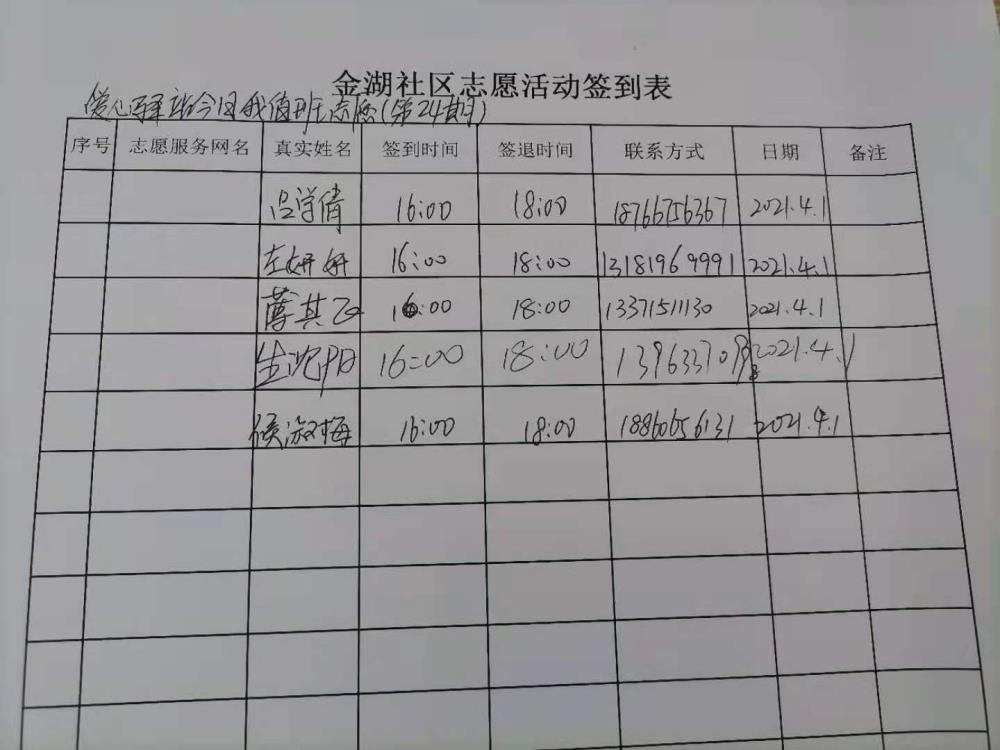 金湖社区志愿活动签到表
爱心驿站今日我值班志愿(第24期)
序号 志愿服务网名 真实姓名 签到时间 签退时间 联系方式 日期 备注
吕学倩 16:00 18:00 18766756367 2021.4.1
左妍妍 16:00 18:00 13181969991 2021.4.1
薄其 16:00 18:00 13371511130 2021.4.1
生沈阳 16:00 18:00 2021.4.1
侯淑梅 16:00 18:00 18860656131 2021.4.1